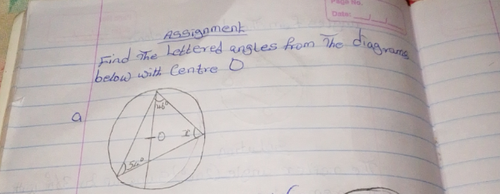 Page No.
Date:
Assignment
Find The lettered angles from The diagrams
below with Centre O
a
48°
O
x
56°